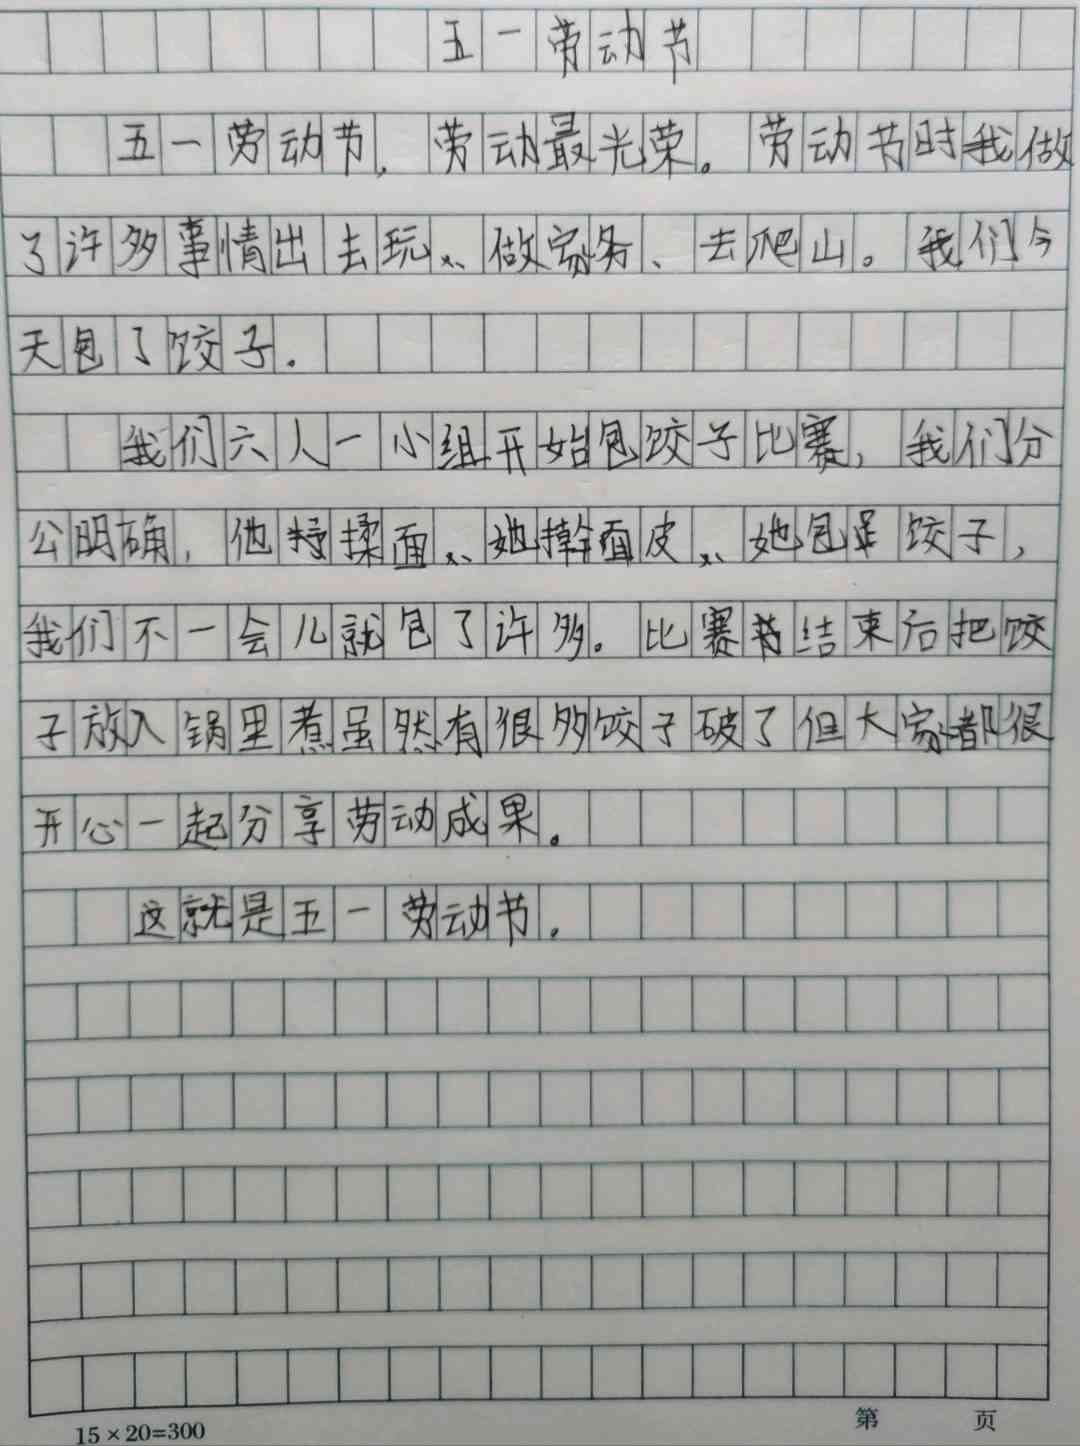 五一劳动节
五一劳动节，劳动最光荣。劳动节时我做
了许多事情出去玩、做家务、去爬山。我们今
天包了饺子.
我们六人一小组开始包饺子比赛，我们分
公明确，他揉面、她擀面皮、她包饺子，
我们不一会儿就包了许多。比赛结束后把饺
子放入锅里煮虽然有很多饺子破了但大家都很
开心一起分享劳动成果。
这就是五一劳动节.
15×20=300
第 页